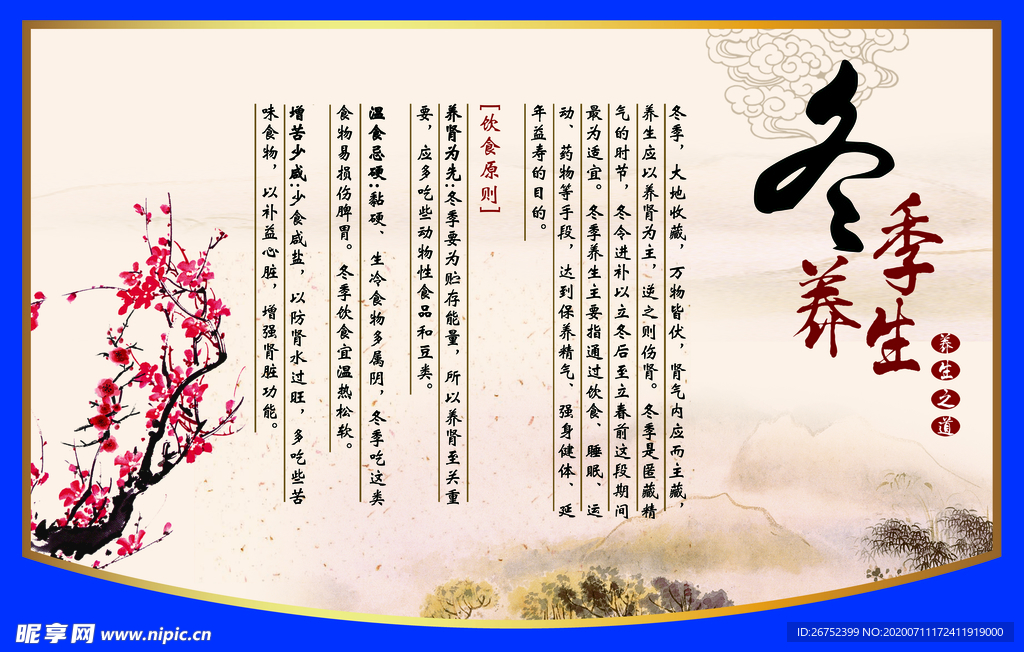 冬季养生
养生之道
冬季，大地收藏，万物皆伏，肾气内应而主藏，
养生应以养肾为主，逆之则伤肾。冬季是匿藏精
气的时节，冬令进补以立冬后至立春前这段期间
最为适宜。冬季养生主要指通过饮食、睡眠、运
动、药物等手段，达到保养精气、强身健体、延
年益寿的目的。
[饮食原则]
养肾为先:冬季要为贮存能量，所以养肾至关重
要，应多吃些动物性食品和豆类。
温食忌硬:黏硬、生冷食物多属阴，冬季吃这类
食物易损伤脾胃。冬季饮食宜温热松软。
增苦少咸:少食咸盐，以防肾水过旺，多吃些苦
味食物，以补益心脏，增强肾脏功能。
昵享网 www.nipic.cn
ID:26752399 NO:20200711172411919000